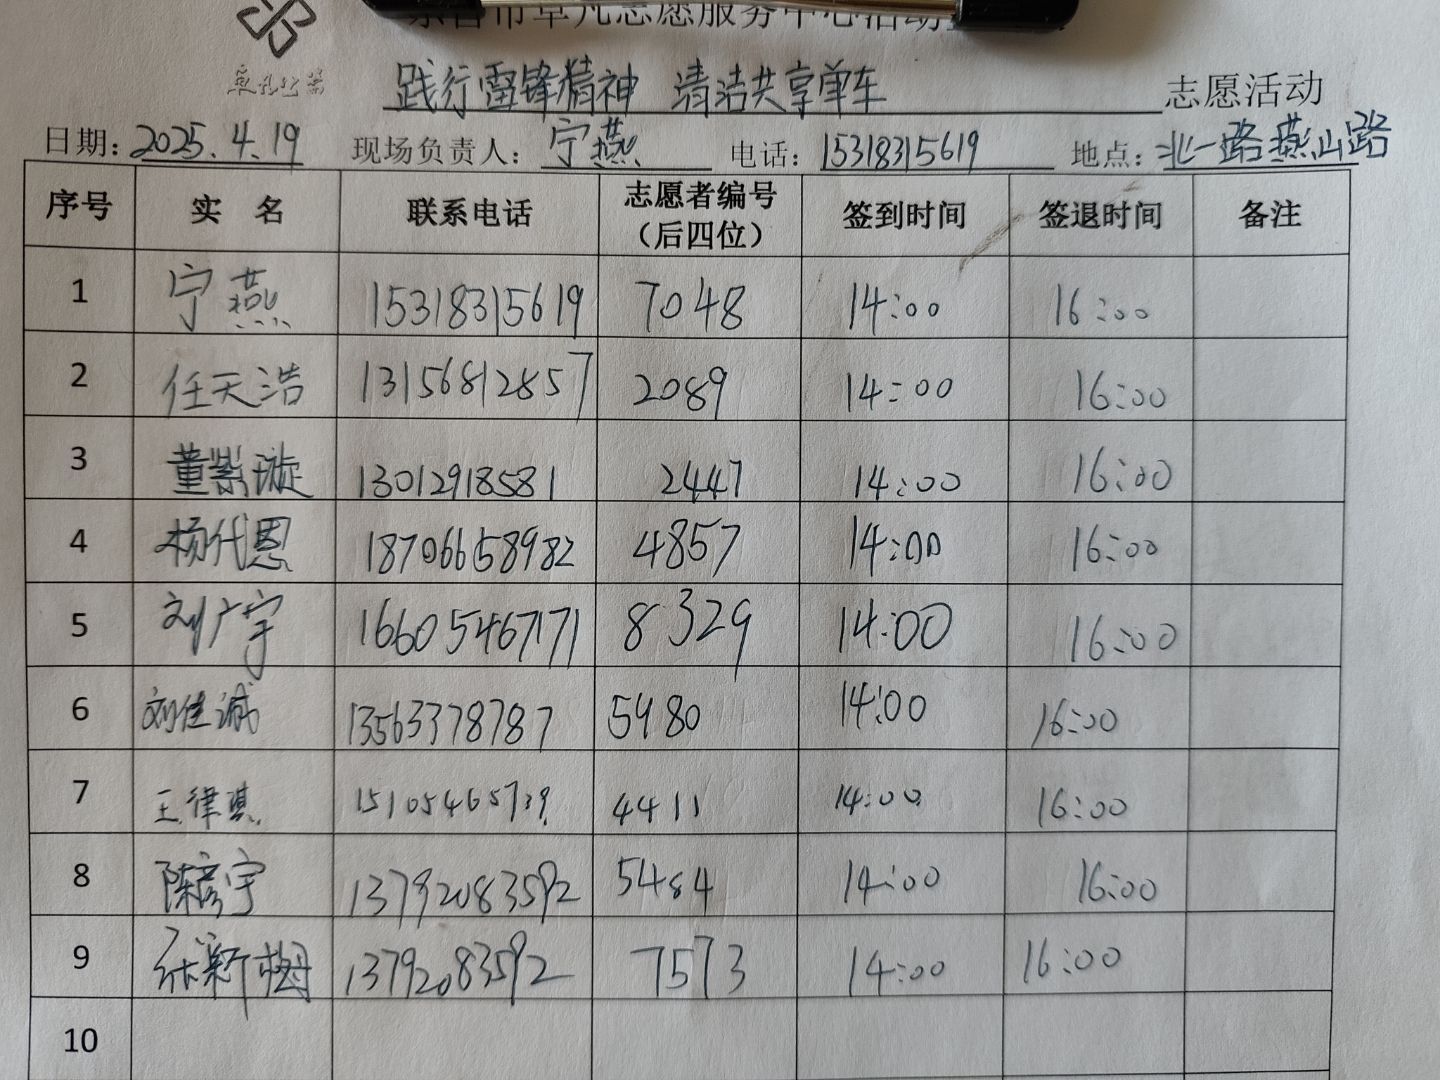 草凡公益
践行雷锋精神 清洁共享单车 志愿活动
日期：2025.4.19 现场负责人：宁燕 电话：15318315619 地点：北一路燕山路
序号 实 名 联系电话 志愿者编号（后四位） 签到时间 签退时间 备注
1 宁燕 15318315619 7048 14:00 16:00
2 任天浩 13156812857 2089 14:00 16:00
3 董紫璇 13012918581 2447 14:00 16:00
4 杨代恩 18706658982 4857 14:00 16:00
5 刘广宇 16605467171 8329 14:00 16:00
6 刘佳诚 13563378787 5980 14:00 16:00
7 王律淇 15105465739 4411 14:00 16:00
8 陈彦宇 13792083592 5484 14:00 16:00
9 张新梅 13792083592 7573 14:00 16:00
10